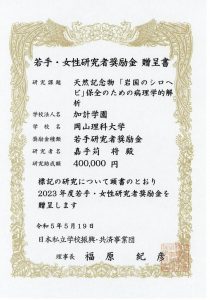 若手・女性研究者奨励金 贈呈書
研究課題 天然記念物「岩国のシロヘ
ビ」保全のための病理学的解
析
学校法人名 加計学園
学校名 岡山理科大学
奨励金種類 若手研究者奨励金
研究者名 嘉手苅 将 殿
研究助成額 400,000 円
標記の研究について頭書のとおり
2023年度若手研究者奨励金を
贈呈します
令和5年5月19日
日本私立学校振興・共済事業団
理事長 福原 紀彦